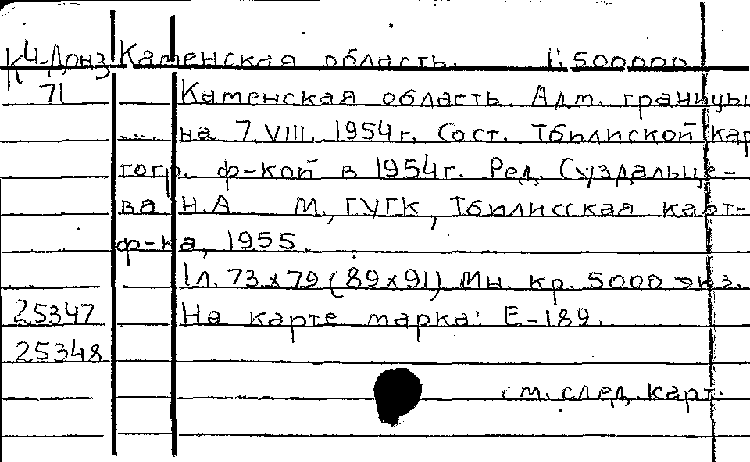 К Ч-Донз Каменская область. 1:500000
71 Каменская область. Адм. границы
на 7.VIII. 1954г. Сост. Тбилиской кар
тогр. ф-кой в 1954г. Ред. Суздальце-
ва Н.А М., ГУГК, Тбилисская карт-
ф-ка, 1955.
1л. 73х79 (89х91) Мн. кр. 5000 экз.
25347 На карте марка: Е-189.
25348
см. след. карт.